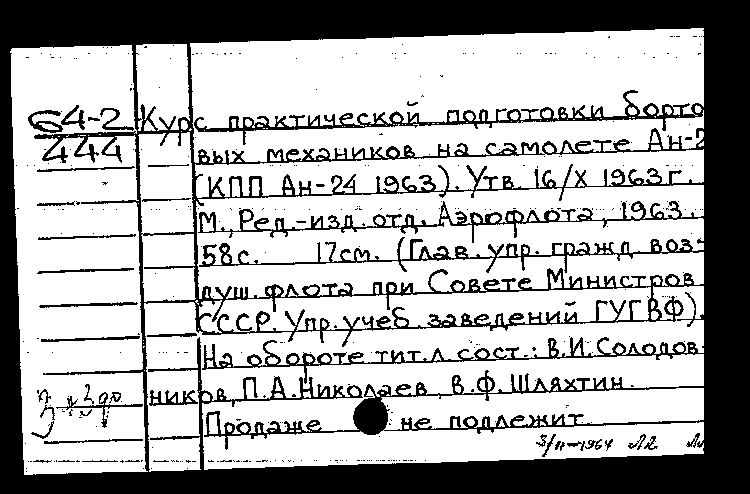 64-2
444
Курс практической подготовки борто
вых механиков на самолете Ан-2
(КПП Ан-24 1963). Утв. 16/X 1963г.
М., Ред.-изд. отд. Аэрофлота, 1963.
58с. 17см. (Глав. упр. гражд. воз-
душ. флота при Совете Министров
СССР. Упр. учеб. заведений ГУГВФ).
На обороте тит. л. сост.: В.И. Солодов-
ников, П.А. Николаев, В.Ф. Шляхтин.
Продаже не подлежит.
3/II-1964